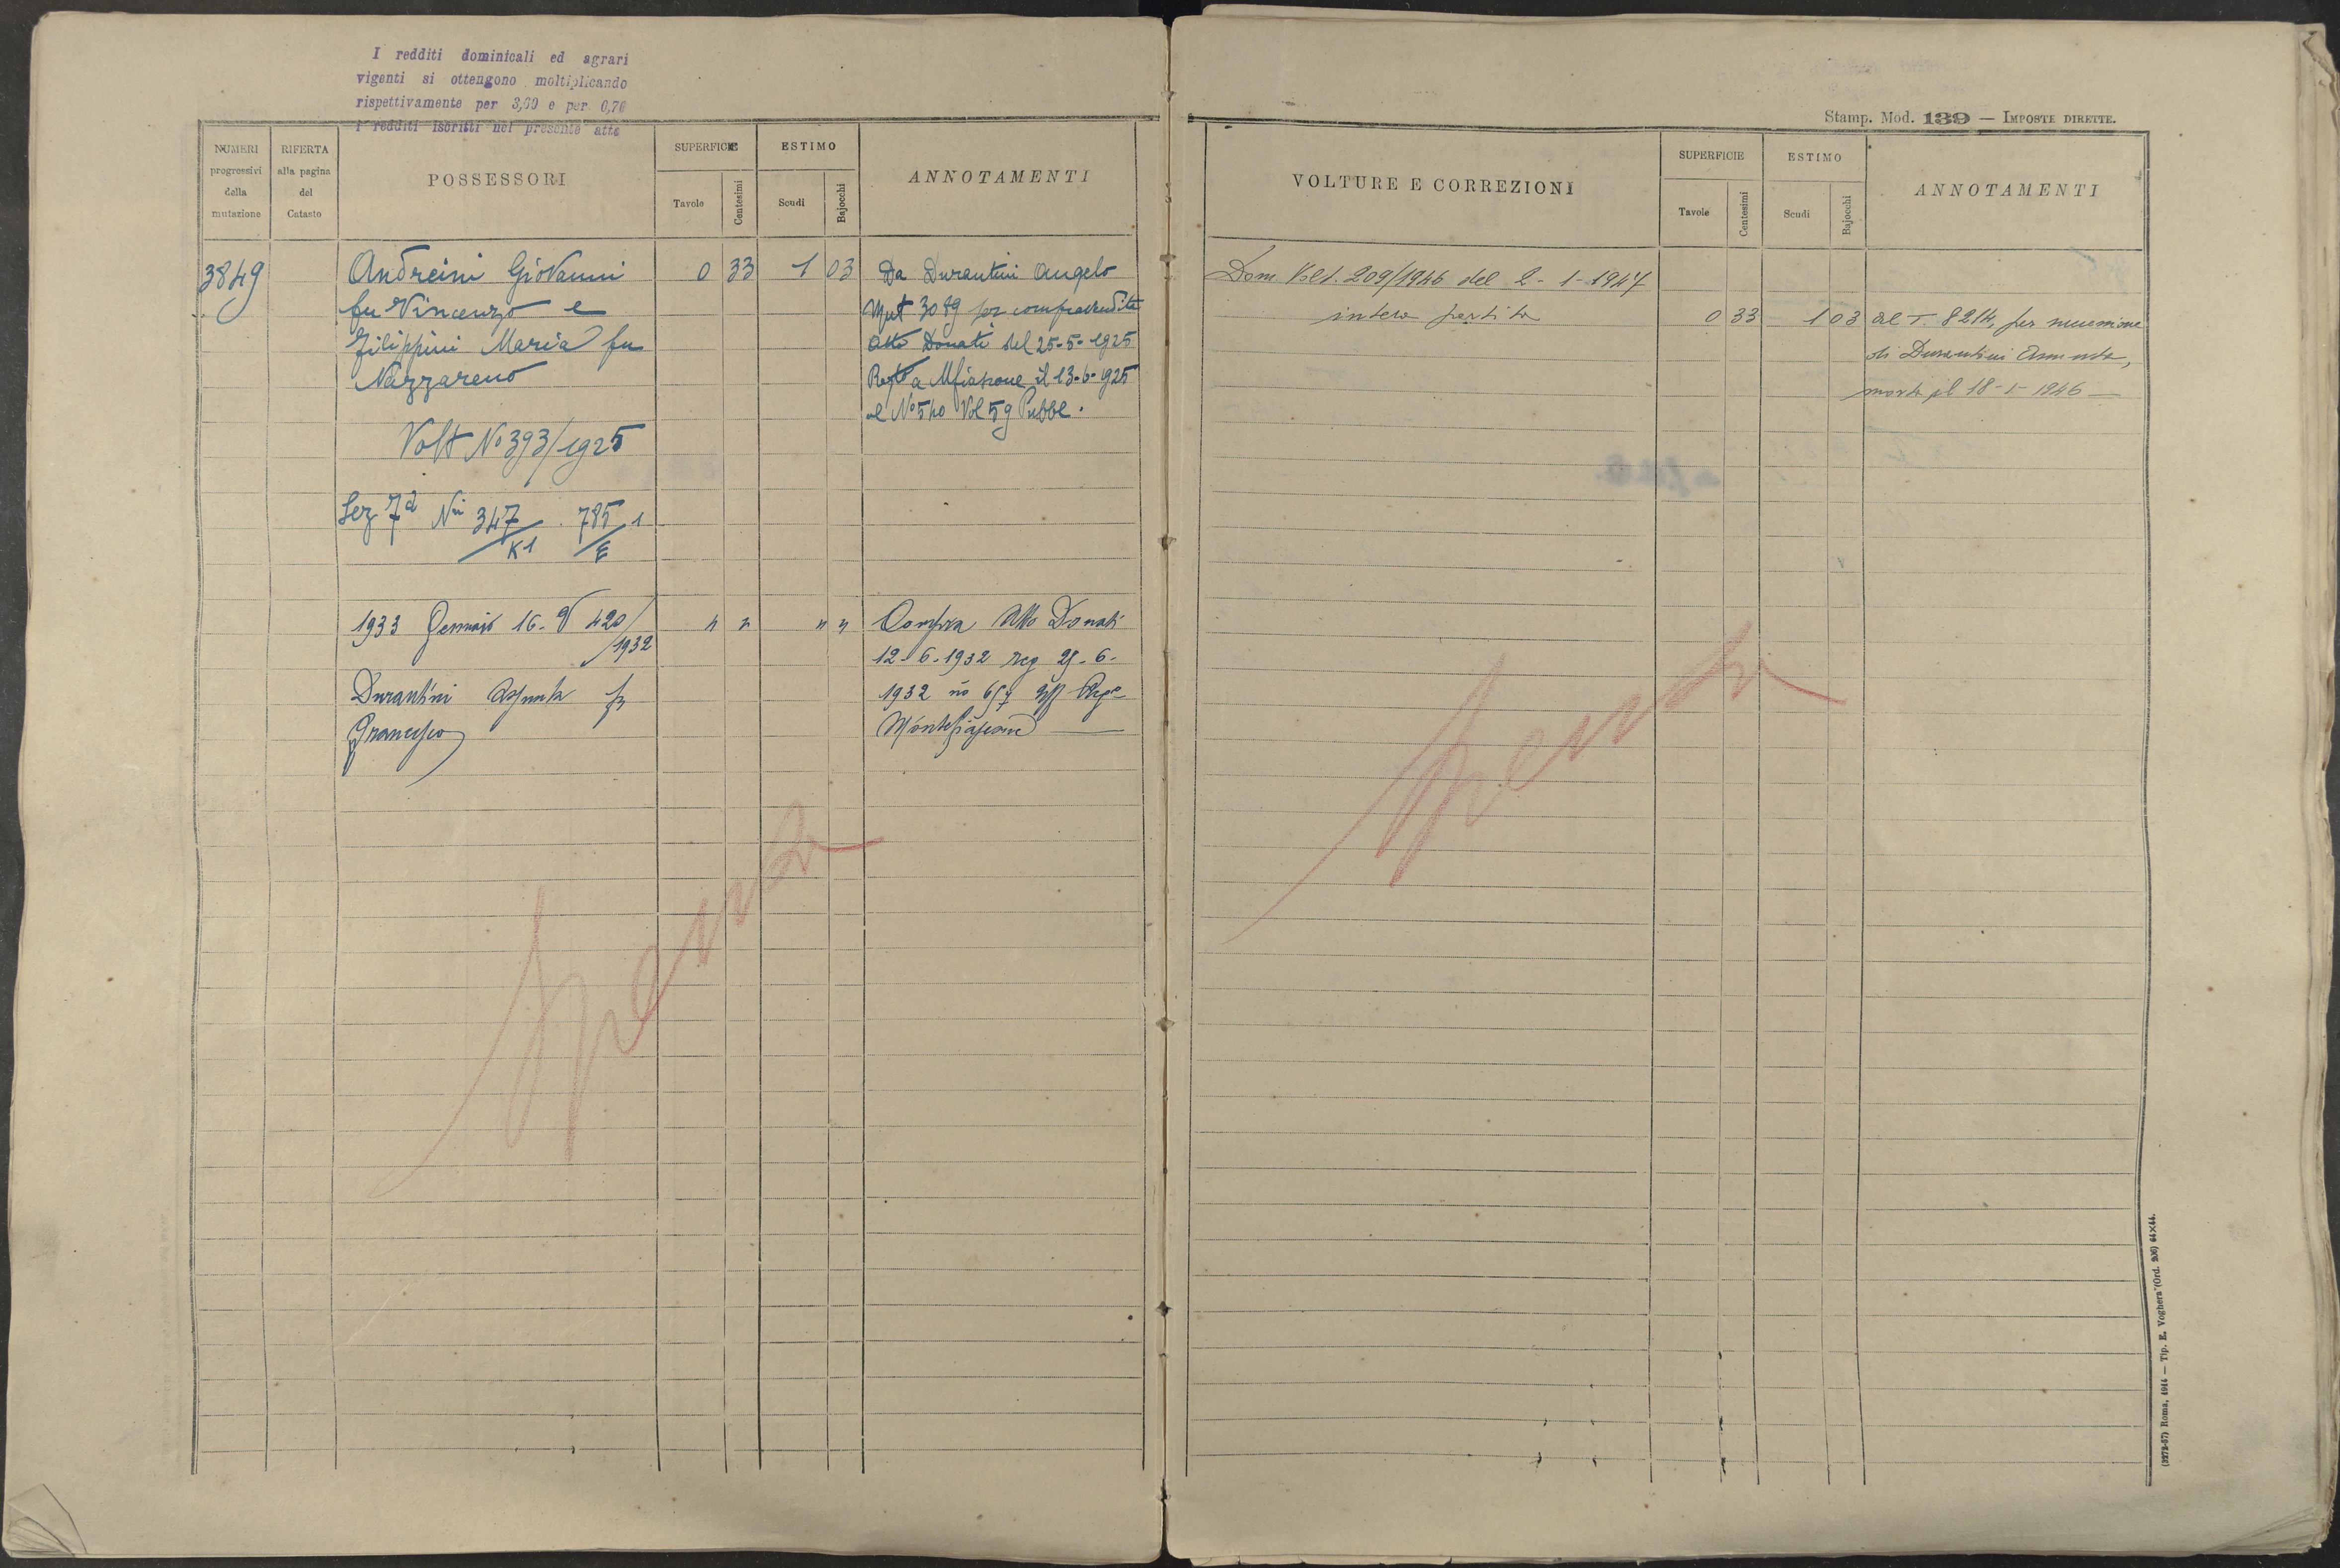 I redditi dominicali ed agrari
vigenti si ottengono moltiplicando
rispettivamente per 3,60 e per 0,76
i redditi iscritti nel presente atto
NUMERI
progressivi
della
mutazione
RIFERTA
alla pagina
del
Catasto
POSSESSORI
SUPERFICIE
Tavole
Centesimi
ESTIMO
Scudi
Bajocchi
ANNOTAMENTI
3849
Andreini Giovanni
fu Vincenzo e
Filippini Maria fu
Nazzareno
0 33 1 03
Da Durantini Angelo
Mut 3089 per compravendita
Atto Donati del 25-5-1925
Regto a Mfiascone il 13-6-925
al No 510 Vol 59 Pubbl.
Volt No 393/1925
Sez 7a Ni 347/K1 . 785/E 1
1933 Gennaio 16. V 420/1932
" " " "
Durantini Assunta fu
Francesco
Compra Atto Donati
12-6-1932 reg 29-6-
1932 no
Montefiascone
Spenta
Stamp. Mod. 139 — IMPOSTE DIRETTE.
VOLTURE E CORREZIONI
SUPERFICIE
Tavole
Centesimi
ESTIMO
Scudi
Bajocchi
ANNOTAMENTI
Dom. Volt. 209/1946 del 2-1-1947
intera partita
0 33 1 03
al T. 8214, per successione
di Durantini Assunta,
morta il 18-1-1946
Spenta
(3272-57) Roma, 1914 — Tip. E. Voghera (Ord. 206) 64×44.